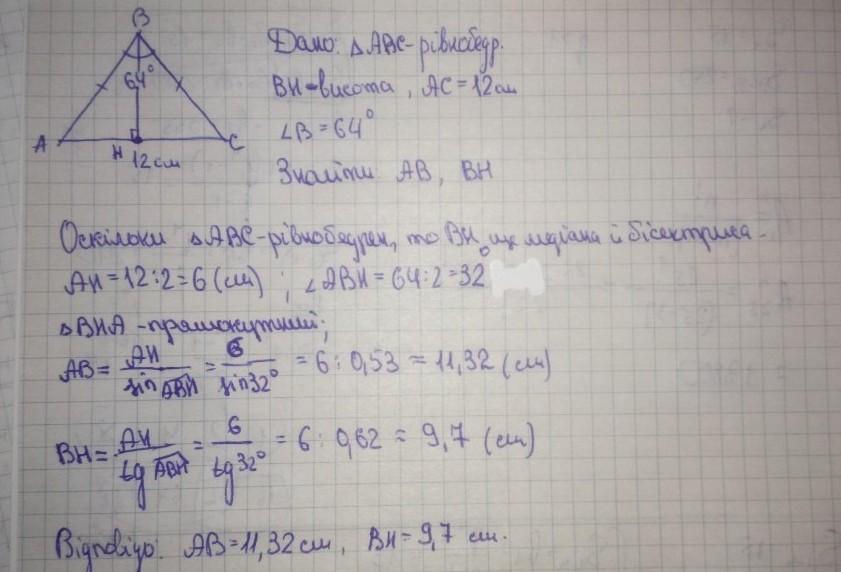 B
Дано: △ABC-рівнобедр.
64°
BH-висота, AC=12см
∠B=64°
A H 12см C
Знайти AB, BH
Оскільки △ABC-рівнобедрен, то BH ще медіана й бісектриса.
AH=12:2=6(см); ∠ABH=64:2=32°
△BHA-прямокутний;
AB= AH/sin ABH = 6/sin32° = 6:0,53 ≈ 11,32 (см)
BH= AH/tg ABH = 6/tg32° = 6:0,62 ≈ 9,7 (см)
Відповідь: AB=11,32см, BH=9,7 см.